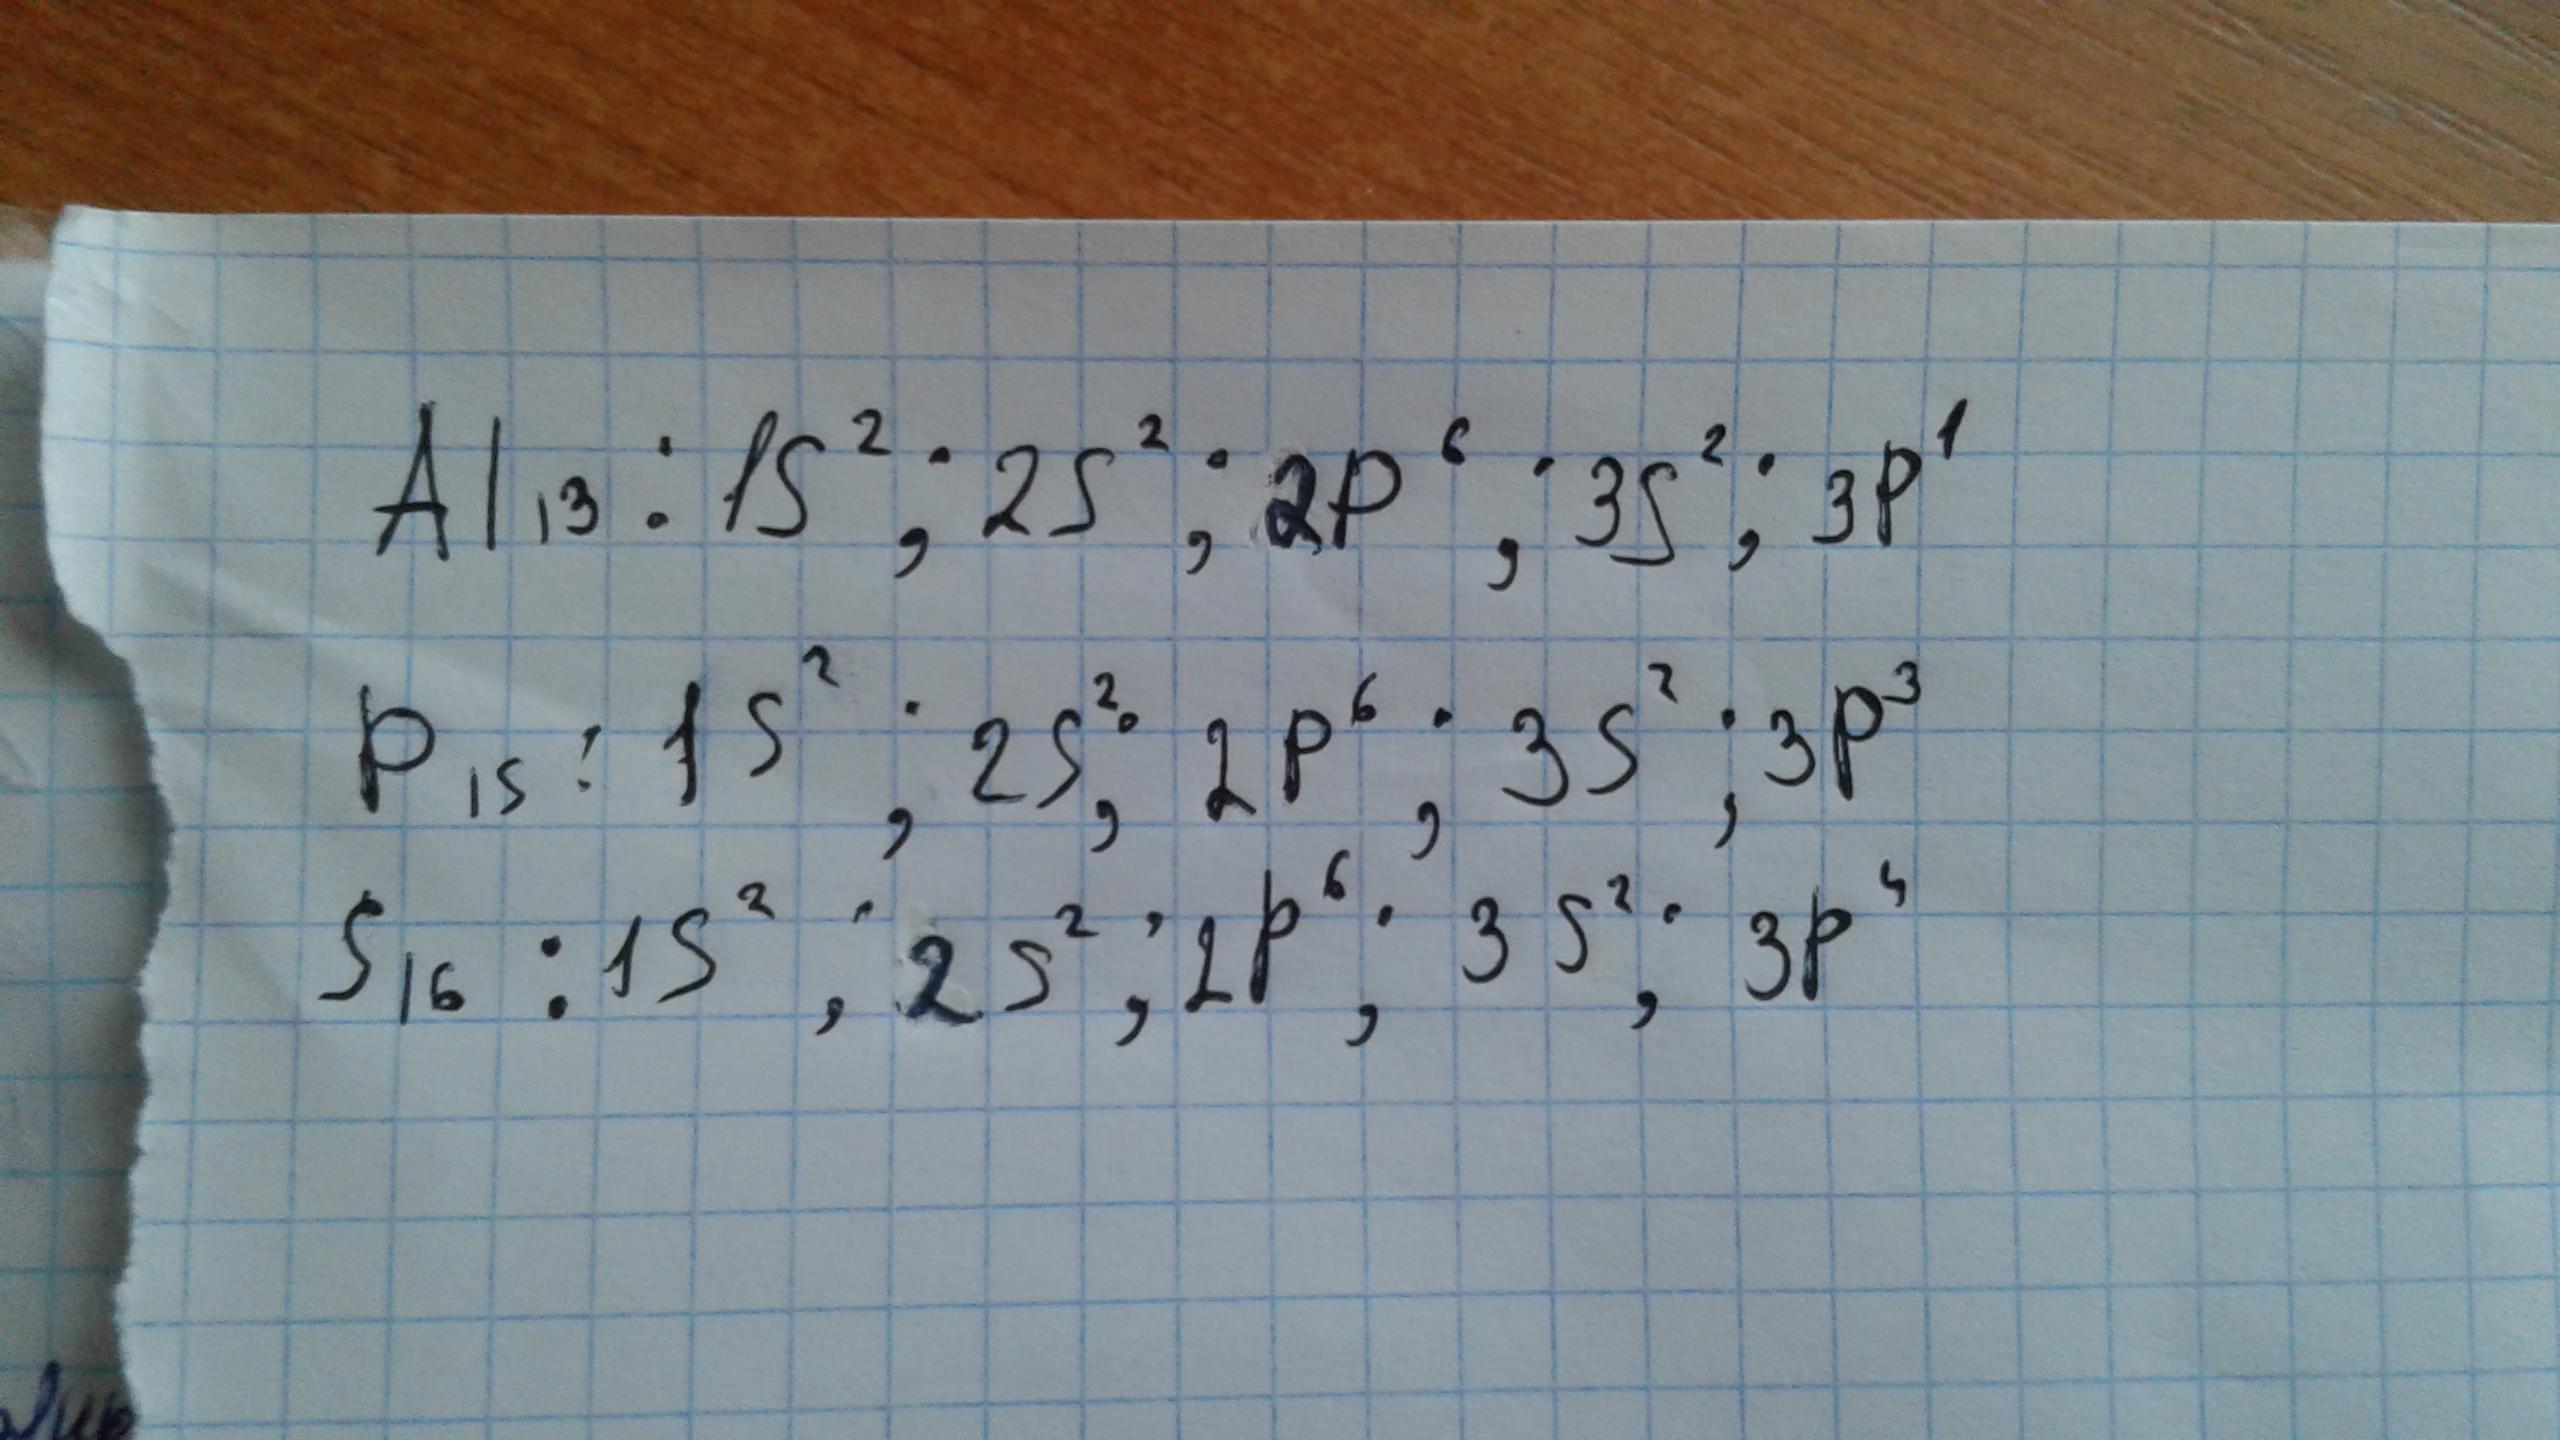 Al₁₃ : 1S² ; 2S² ; 2P⁶ ; 3S² ; 3P¹
P₁₅ : 1S² ; 2S² ; 2P⁶ ; 3S² ; 3P³
S₁₆ : 1S² ; 2S² ; 2P⁶ ; 3S² ; 3P⁴